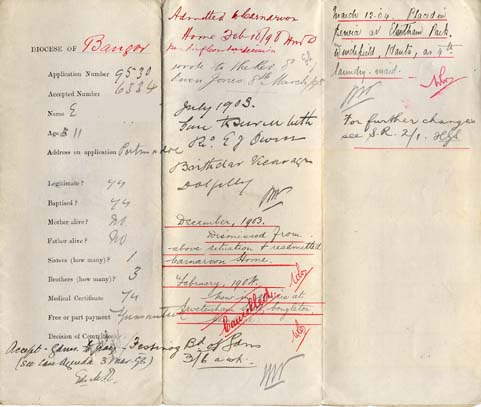 DIOCESE OF Bangor
Application Number 9530
Accepted Number 6554
Name E
Age 11
Address on application Portmadoc
Legitimate? Yes
Baptised? Yes
Mother alive? No
Father alive? No
Sisters (how many)? 1
Brothers (how many)? 3
Medical Certificate Yes
Free or part payment
Decision of
Accept - Gdns to pay - Festiniog Bd of Gdns
(See Case Agenda 3 Mar 98)
3/6 a wk.
Admitted to Carnarvon
Home Feb 10/98
pending Com: decision
wrote to the Rev.
Owen Jones, 8th March/98
July 1903.
Gone to Service with
Rev. E J Owen
Vicarage
Dolgelly
December, 1903.
Dismissed from
above situation & readmitted
Carnarvon Home.
February, 1904.
Now at
Congleton
Cancelled
March 12.04. Placed in
service at Park,
Winchfield, Hants, as 4th
laundry-maid.
For further changes
see S.R. 2/1.